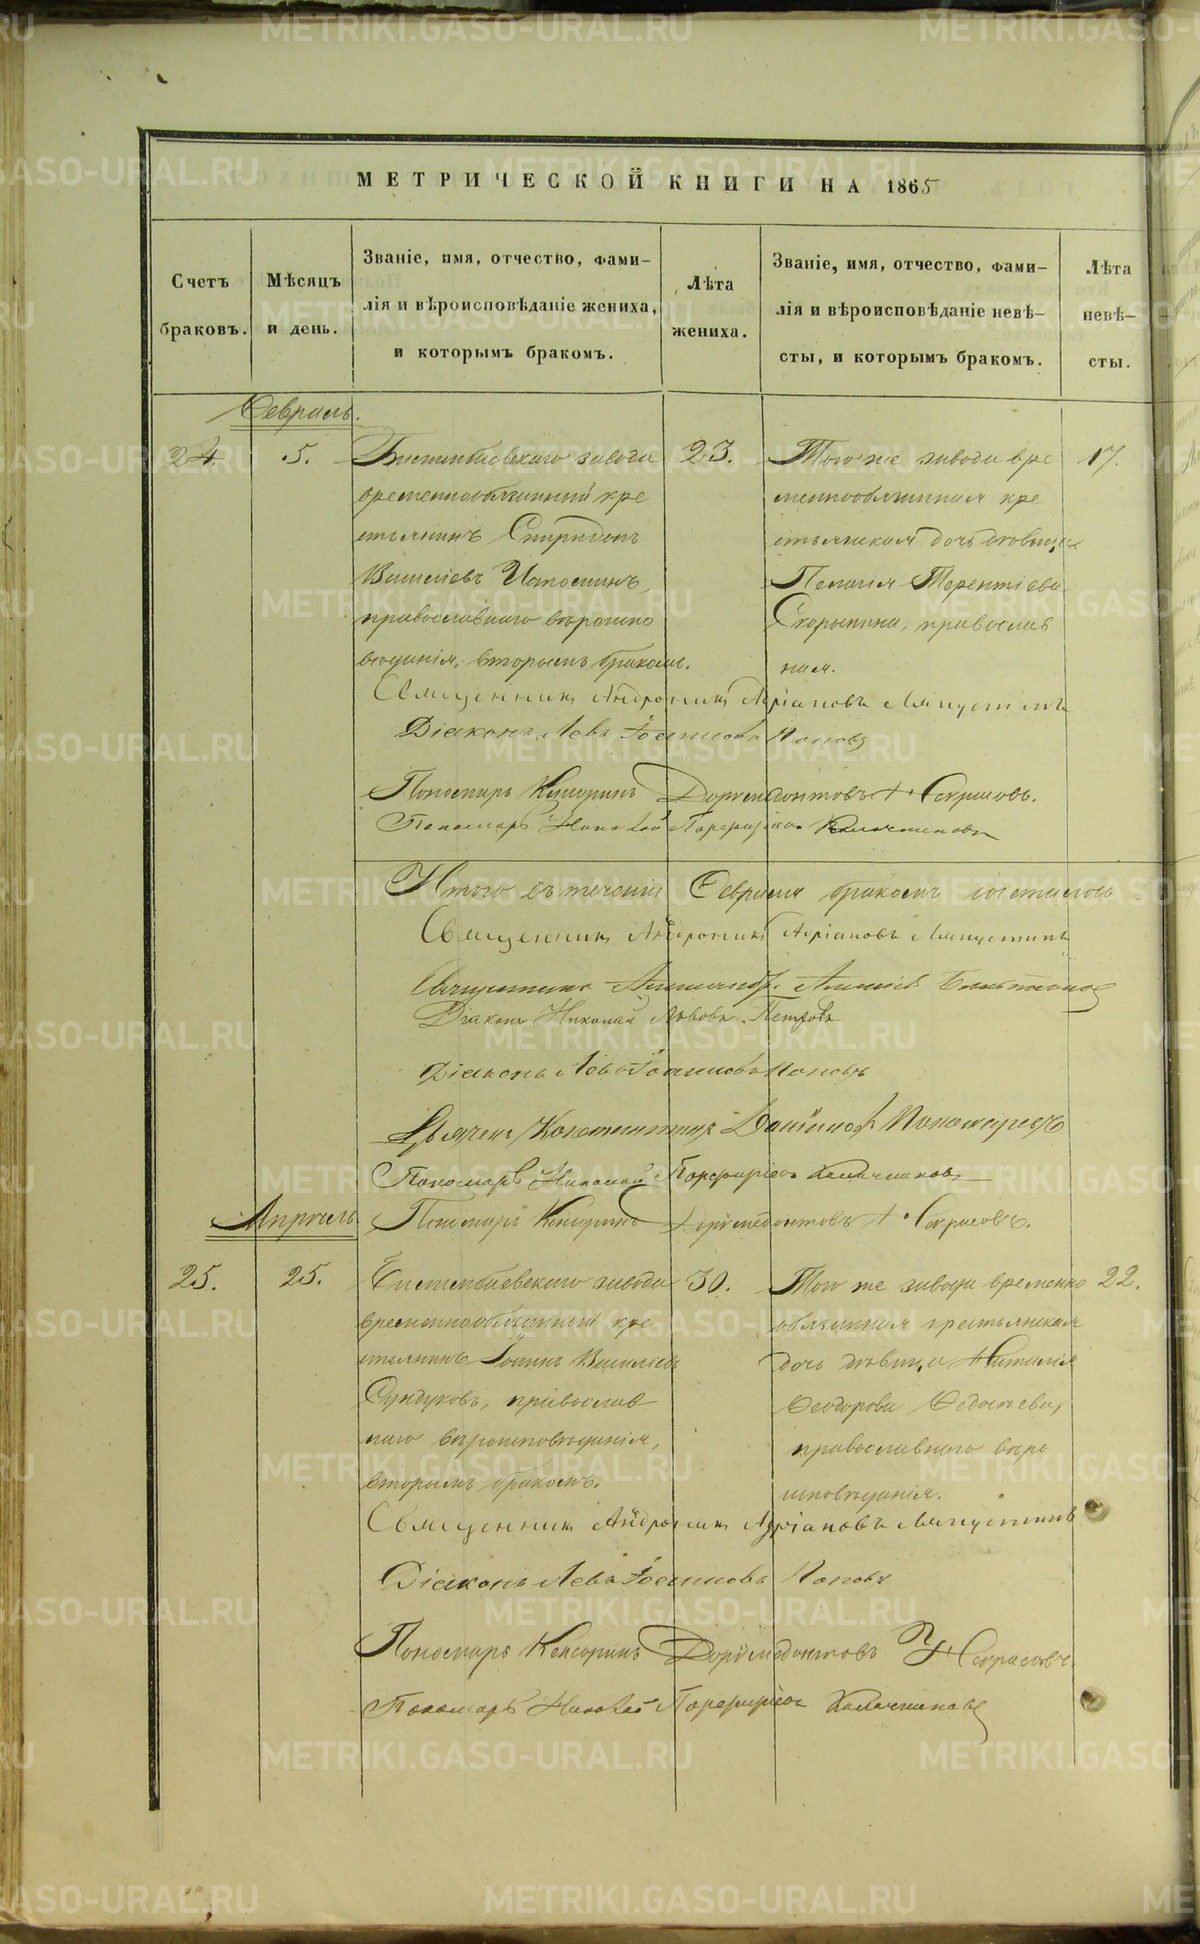 МЕТРИЧЕСКОЙ КНИГИ НА 1865
Счетъ браковъ.
Мѣсяцъ и день.
Званіе, имя, отчество, фами-
лія и вѣроисповѣданіе жениха,
и которымъ бракомъ.
Лѣта жениха.
Званіе, имя, отчество, фами-
лія и вѣроисповѣданіе невѣ-
сты, и которымъ бракомъ.
Лѣта
невѣ-
сты.
Февраль.
24.
5.
Билимбаевскаго завода
временнообязанный кре
стьянинъ Спиридонъ
Василіевъ
православнаго вѣроиспо
вѣданія, вторымъ бракомъ.
23.
Того же завода вре
меннообязанная кре
стьянская дочь дѣвица
Пелагія Терентіева
Скорынина, православ
ная.
17.
Священникъ Андроникъ Адріановъ Ляпустинъ
Діаконъ Левъ Іоанновъ Поповъ
Пономарь Кенсоринъ Доримедонтовъ Некрасовъ.
Пономарь Николай Порфиріевъ Калачниковъ
Итого въ теченіи Февраля бракомъ сочеталось
Священникъ Андроникъ Адріановъ Ляпустинъ
Священникъ
Діаконъ Николай Львовъ Петровъ.
Діаконъ Левъ Іоанновъ Поповъ
Дьячекъ Константинъ Пономаревъ
Пономарь Николай Порфиріевъ Калачниковъ
Пономарь Кенсоринъ Доримедонтовъ Некрасовъ.
Апрѣль
25.
25.
Билимбаевскаго завода
временнообязанный кре
стьянинъ Іоаннъ Василіевъ
Сундуковъ, православ
наго вѣроисповѣданія,
вторымъ бракомъ.
30.
Того же завода временно
обязанная крестьянская
дочь дѣвица Наталія
Ѳеодорова Ѳедосѣева,
православнаго вѣро
исповѣданія.
22.
Священникъ Андроникъ Адріановъ Ляпустинъ
Діаконъ Левъ Іоанновъ Поповъ
Пономарь Кенсоринъ Доримедонтовъ Некрасовъ.
Пономарь Николай Порфиріевъ Калачниковъ
METRIKI.GASO-URAL.RU